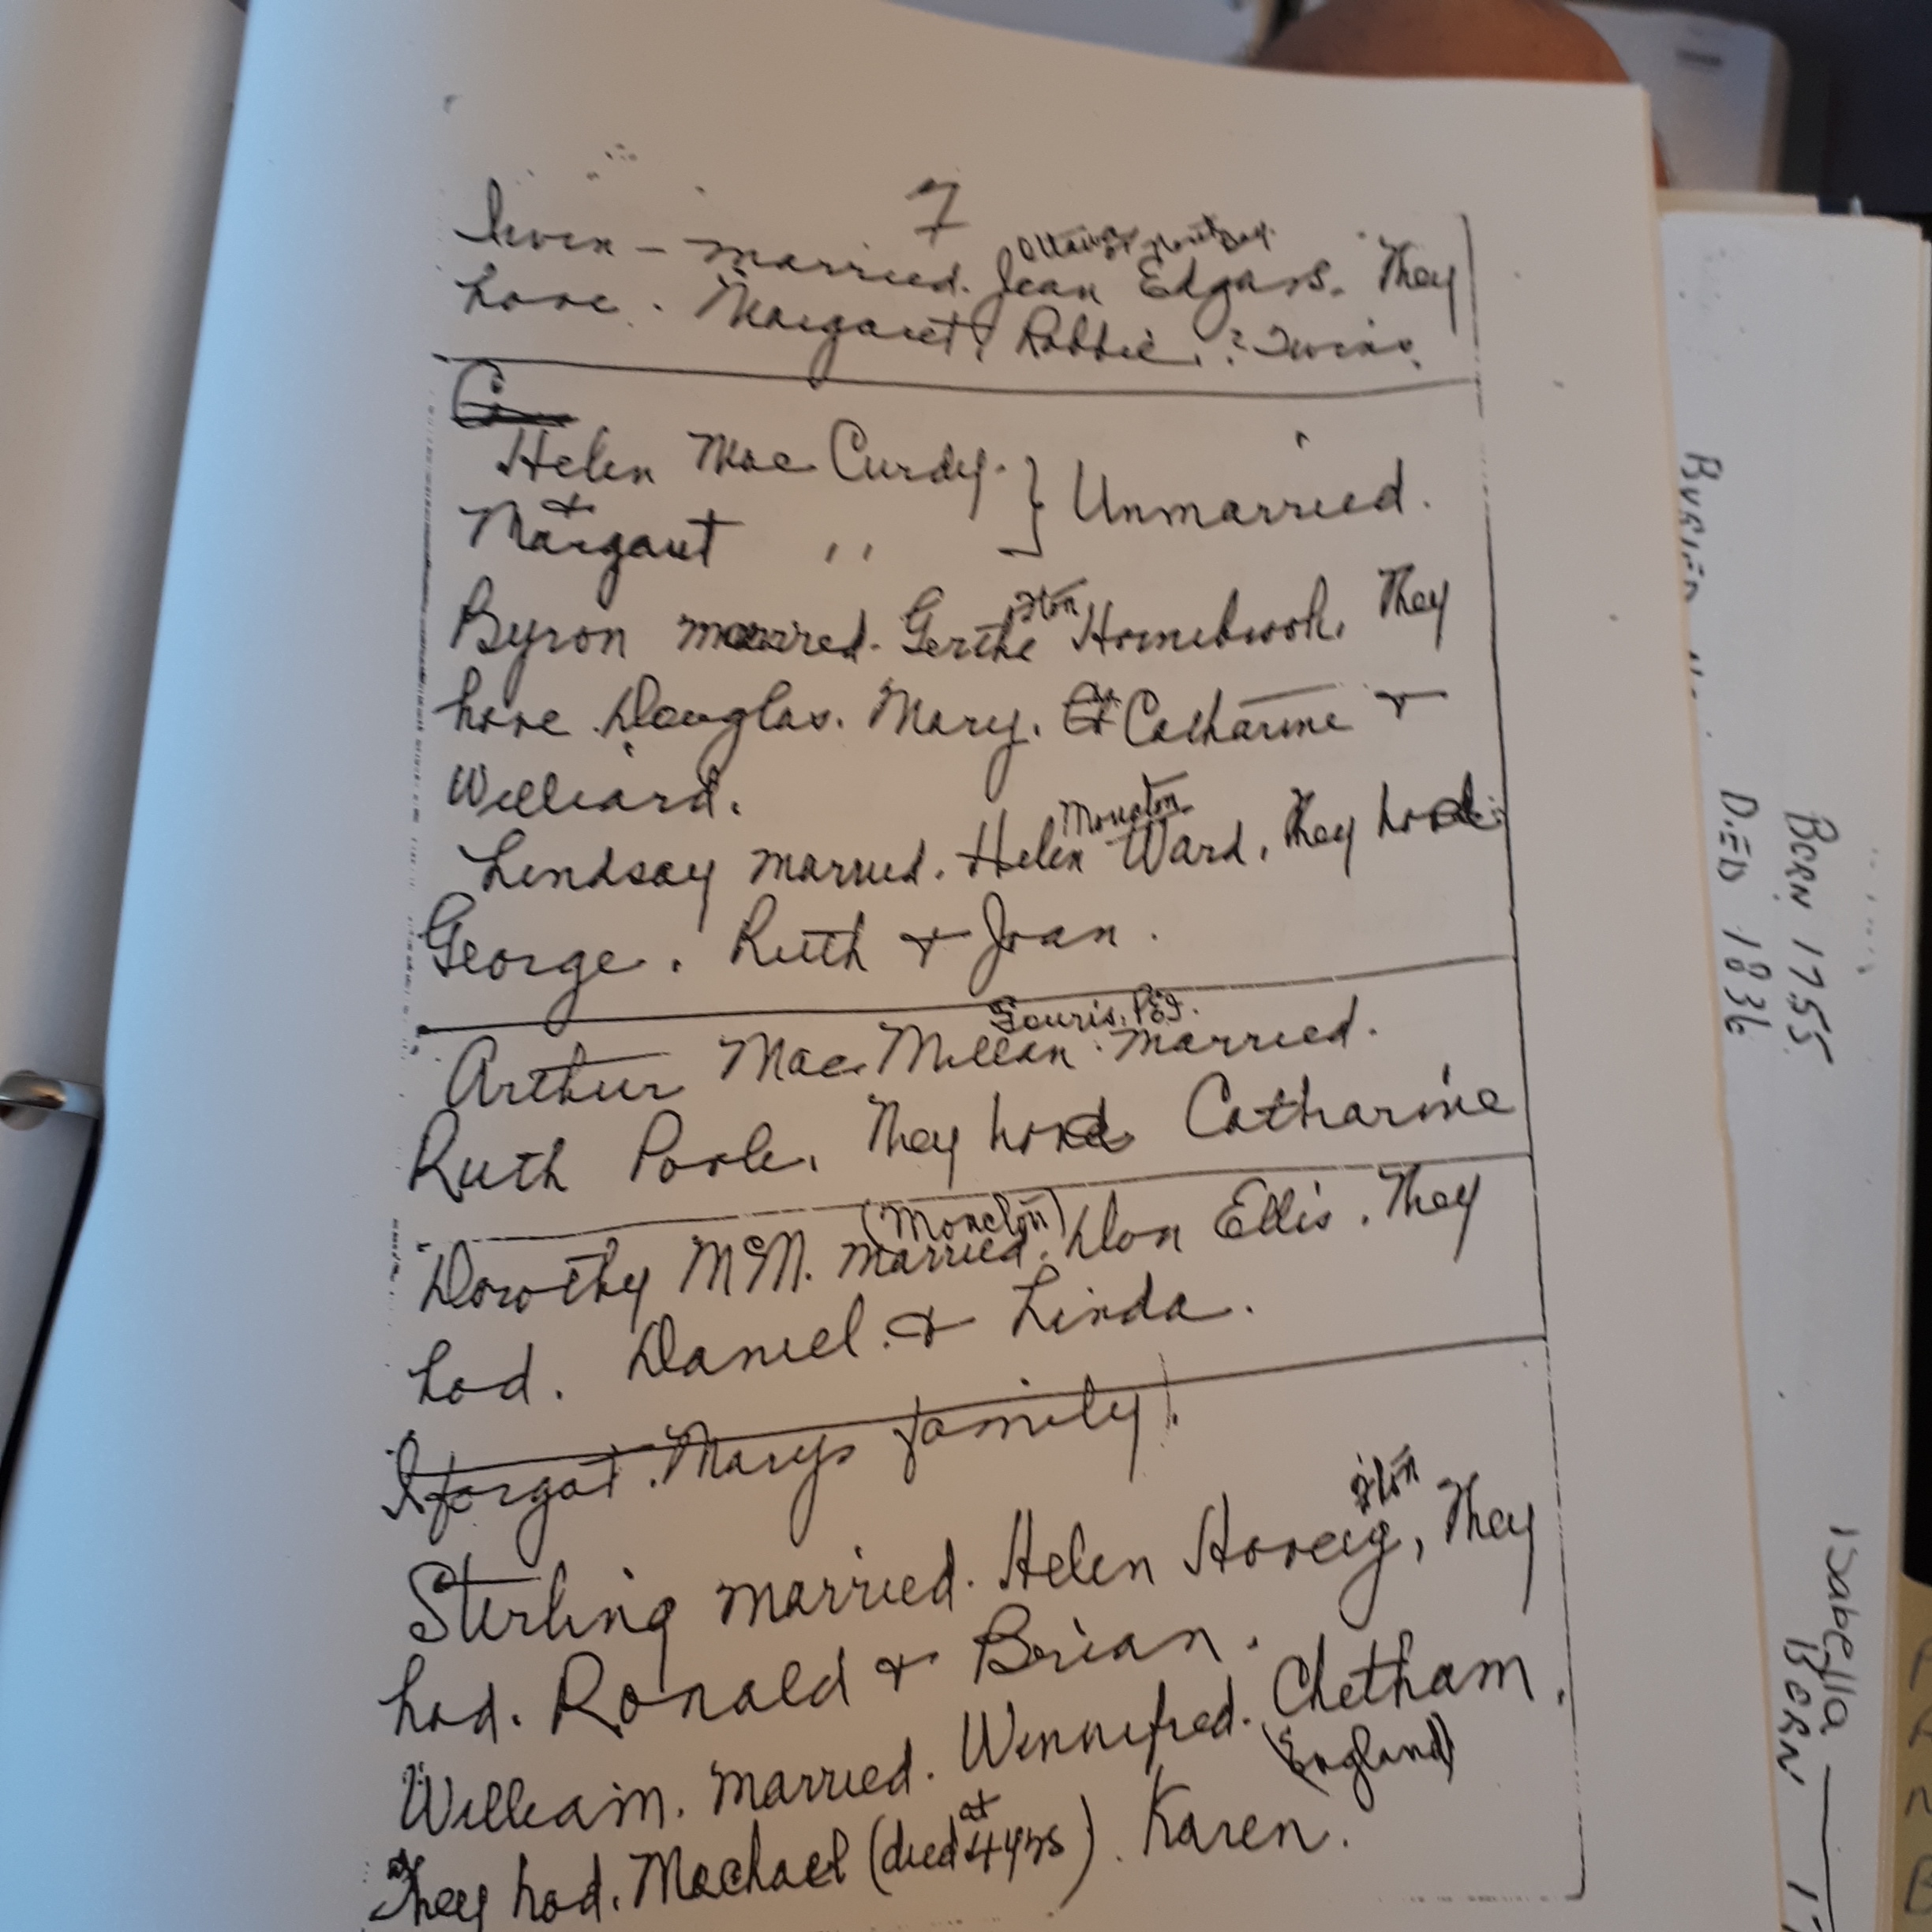 7
married. Jean Edgars. They
have. Margaret & Robbie, ? Twins.
Helen Mac Curdy. } Unmarried.
&
Margaret " "
Byron married. Gertie Hornebrook. They
have Douglas. Mary. Catharine +
Williard.
Moncton
Lindsay married. Helen Ward. They had
George. Ruth + Joan.
Souris. P.E.I.
Arthur Mac Millan married.
Ruth Poole. They had Catharine
(Moncton)
Dorothy McM. married. Don Ellis. They
had. Daniel. & Linda.
I forgot. Marys family.
Sterling married. Helen They
had. Ronald & Brian.
William. married. Winnifred. Chetham.
(England)
at
They had. Machael (died 4 yrs). Karen.
BORN 1755
DIED 1836
Isabella
BORN